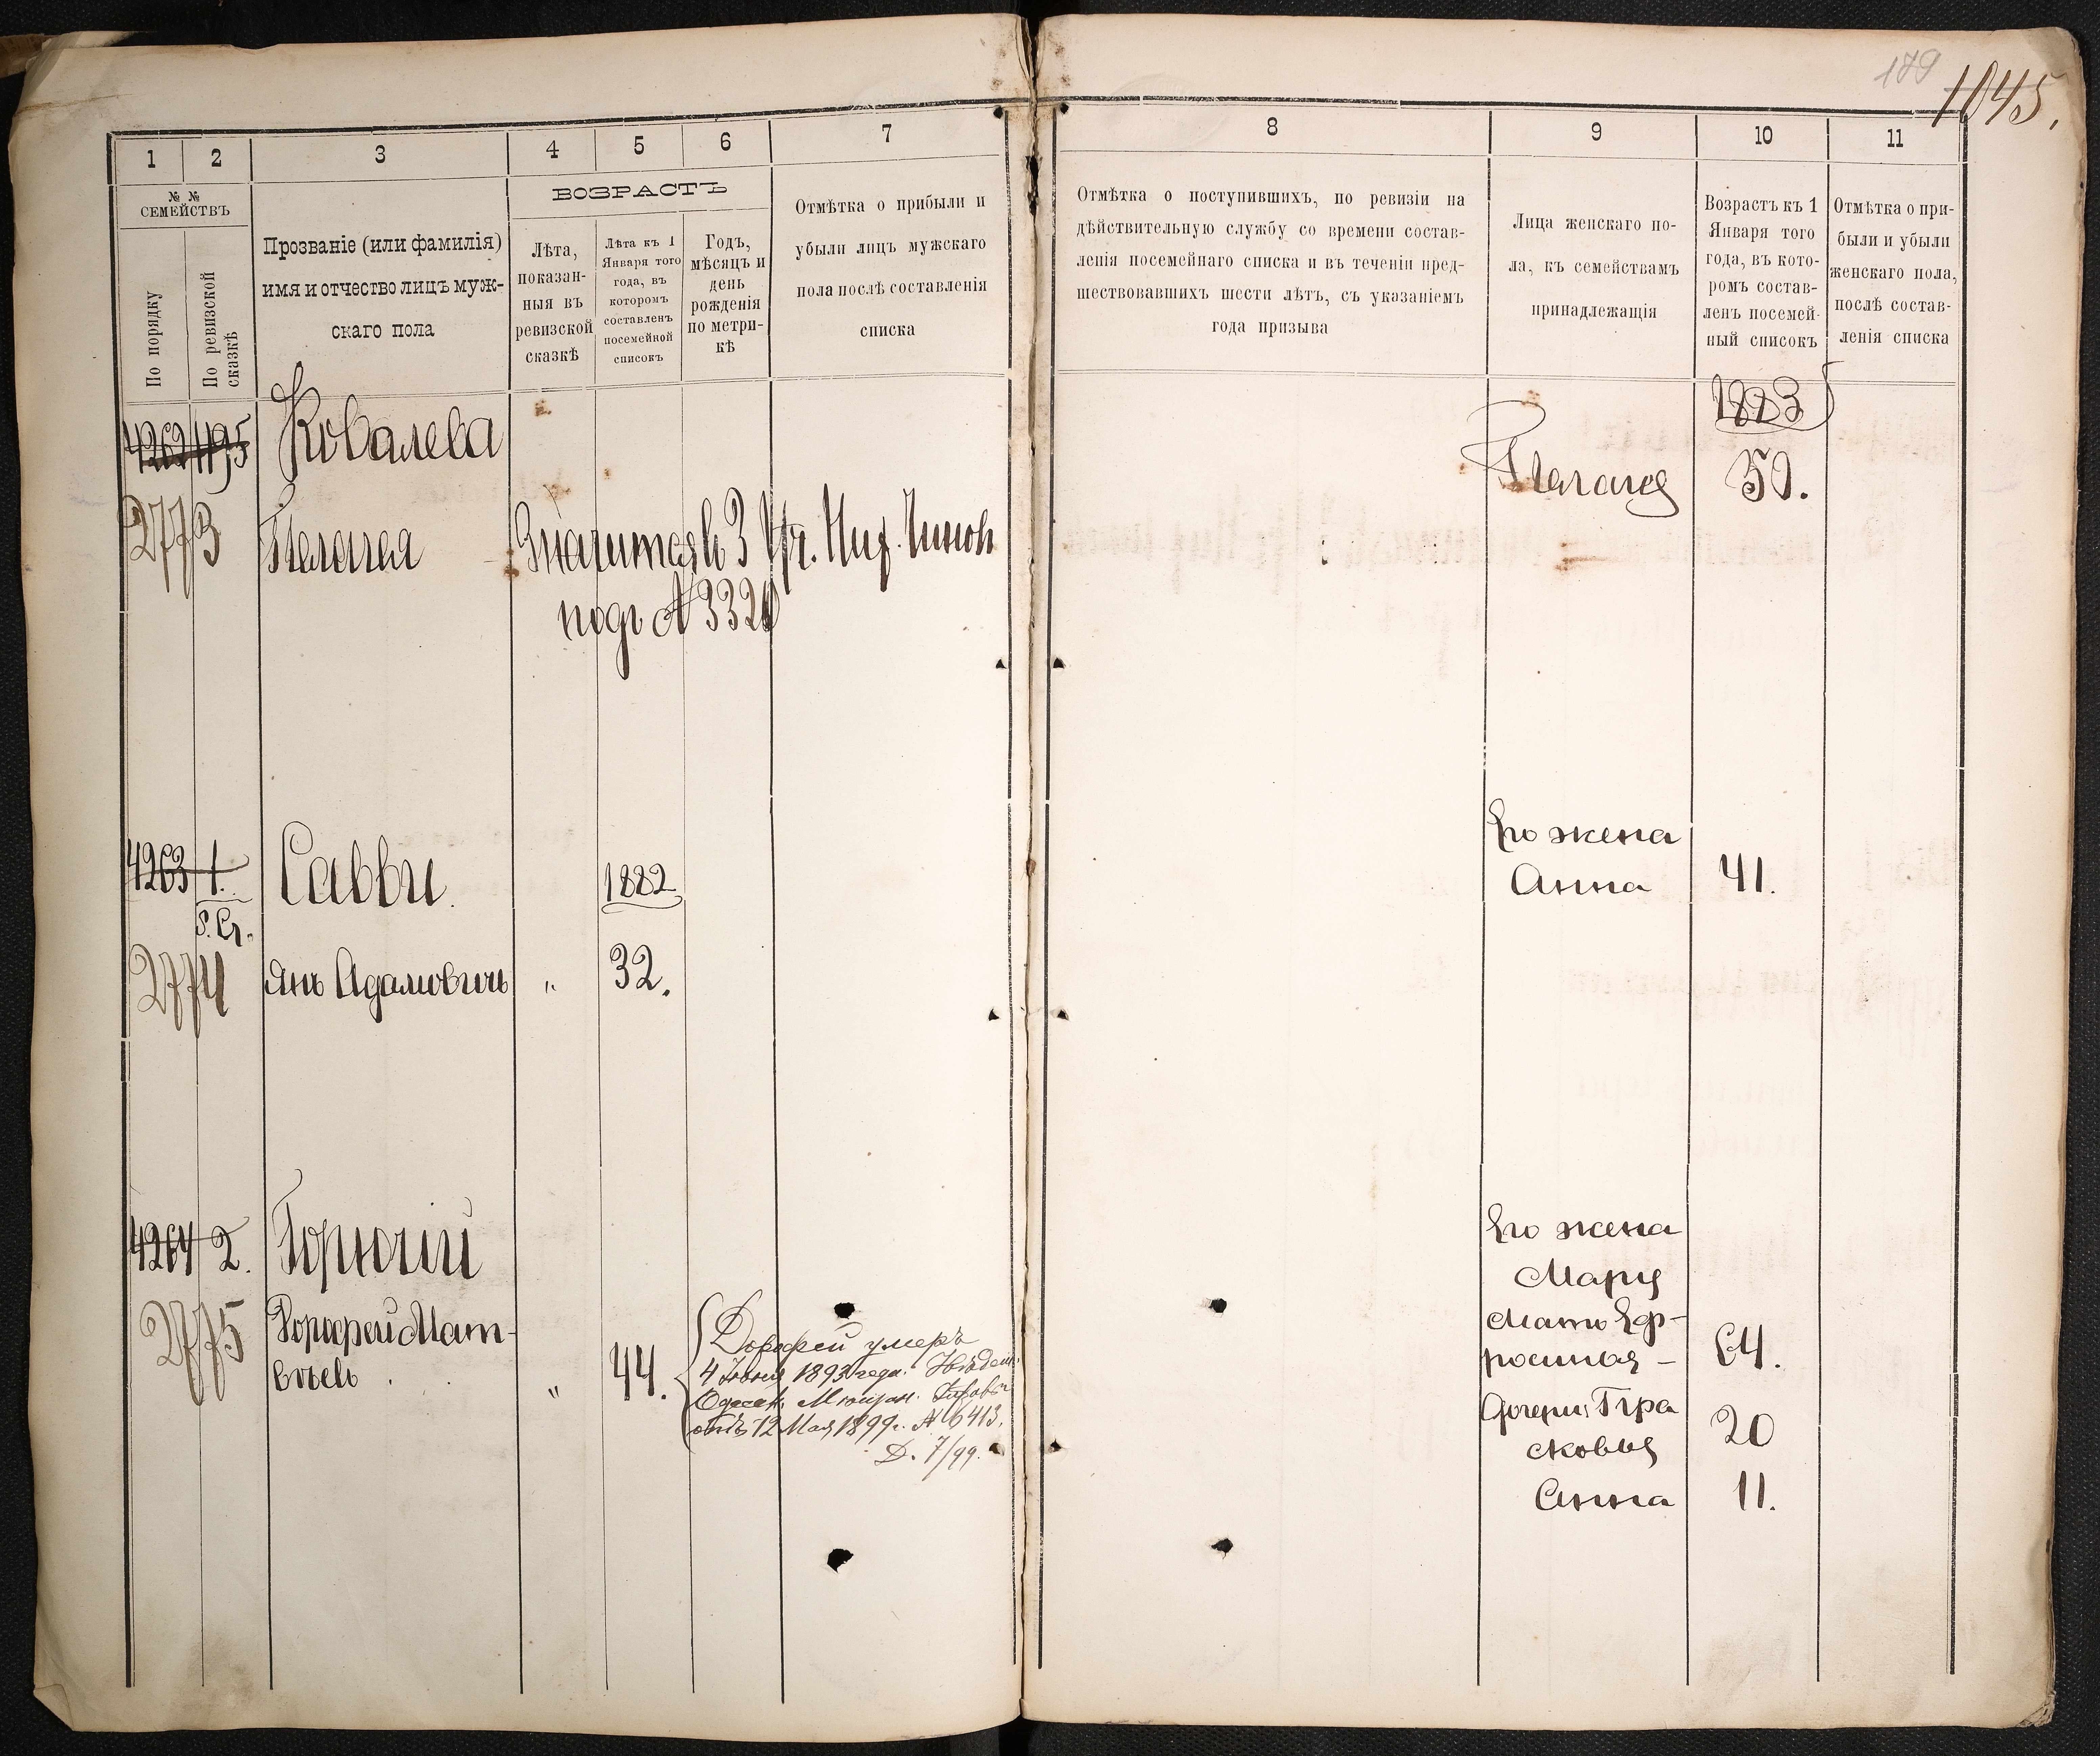 189
1045.
1
2
3
4
5
6
7
8
9
10
11
№ №
СЕМЕЙСТВЪ
По порядку
По ревизской
сказкѣ
Прозваніе (или фамилія)
имя и отчество лицъ муж-
скаго пола
ВОЗРАСТЪ
Лѣта,
показан-
ныя въ
ревизской
сказкѣ
Лѣта къ 1
Января того
года, въ
которомъ
составленъ
посемейной
списокъ
Годъ,
мѣсяцъ и
день
рожденія
по метри-
кѣ
Отмѣтка о прибыли и
убыли лицъ мужскаго
пола послѣ составленія
списка
Отмѣтка о поступившихъ, по ревизіи на
дѣйствительную службу со времени состав-
ленія посемейнаго списка и въ теченіи пред-
шествовавшихъ шести лѣтъ, съ указаніемъ
года призыва
Лица женскаго по-
ла, къ семействамъ
принадлежащія
Возрастъ къ 1
Января того
года, въ кото-
ромъ состав-
ленъ посемей-
ный списокъ
Отмѣтка о при-
были и убыли
женскаго пола,
послѣ состав-
ленія списка
4262 1195 Ковалева
1883
Пелагея 50.
2773 Пелагея Значится въ 3 Уч. Ниж. Чинов
подъ № 3320
Его жена
4263 1. Савви 1882 Анна 41.
2774 Янъ Адамовичъ " 32.
Его жена
4264 2. Горючій
Марія
2775 Дорофей Мат-
вѣевъ " 44.
Дорофей умеръ
4 1893 года.
Одесск. Мѣщан.
отъ 12 Мая 1899 г. № 6413.
Д. 7/99.
Мать Еф-
росинья – 64.
Дочери: Пра
сковья 20
Анна 11.